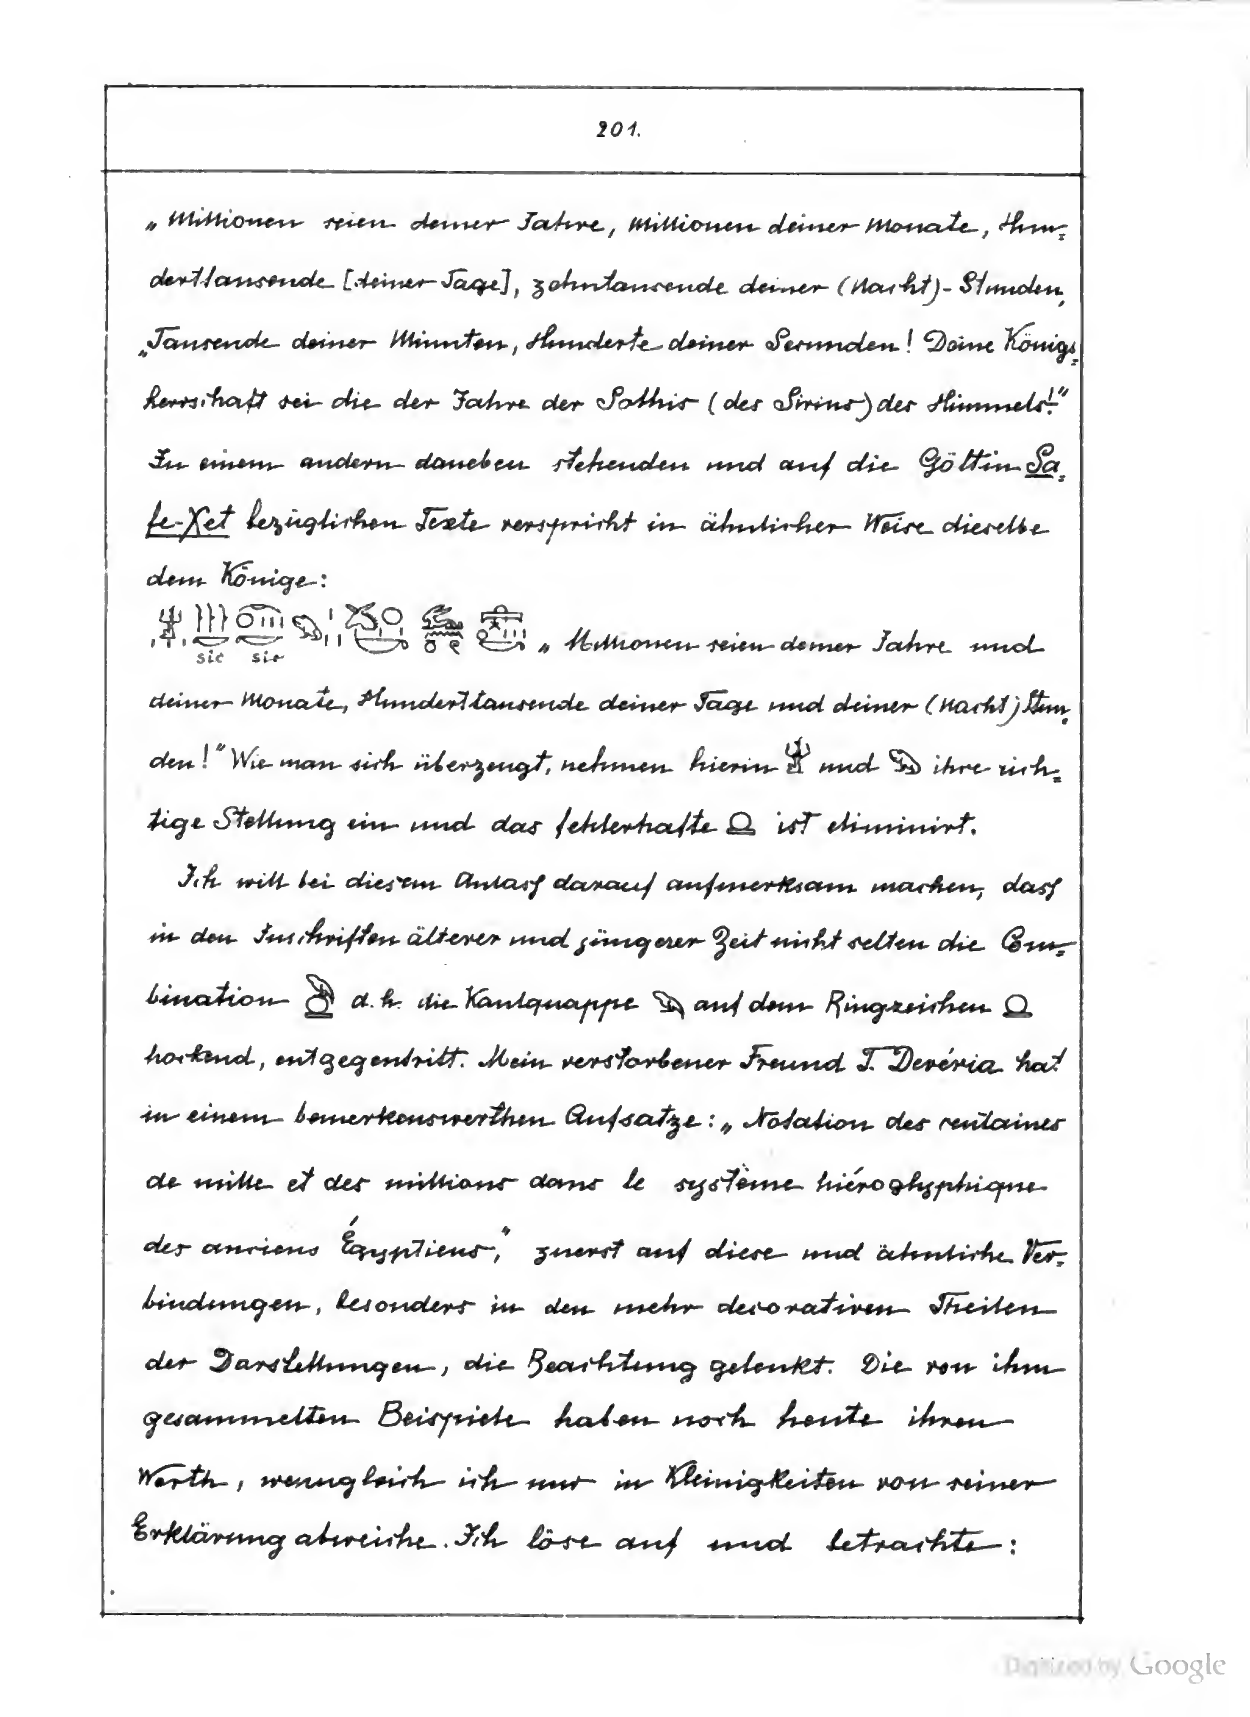 201.
„Millionen seien deiner Jahre, Millionen deiner Monate, Hun-
derttausende [deiner Tage], zehntausende deiner (Nacht)-Stunden,
„Tausende deiner Minuten, Hunderte deiner Secunden! Deine Königs-
herrschaft sei die der Jahre der Sothis (des Sirius) des Himmels!"
In einem andern daneben stehenden und auf die Göttin Sa-
fe-Xet bezüglichen Texte verspricht in ähnlicher Weise dieselbe
dem Könige:
„Millionen seien deiner Jahre und
sic sic
deiner Monate, Hunderttausende deiner Tage und deiner (Nacht)Stun-
den!" Wie man sich überzeugt, nehmen hierin und ihre rich-
tige Stellung ein und das fehlerhafte ist eliminirt.
Ich will bei diesem Anlass darauf aufmerksam machen, dass
in den Inschriften älterer und jüngerer Zeit nicht selten die Com-
bination d.h. die Kaulquappe auf dem Ringzeichen
hockend, entgegentritt. Mein verstorbener Freund T. Devéria hat
in einem bemerkenswerthen Aufsatze: „Notation des centaines
de mille et des millions dans le système hiéroglyphique
des anciens Égyptiens," zuerst auf diese und ähnliche Ver-
bindungen, besonders in den mehr decorativen Theilen
der Darstellungen, die Beachtung gelenkt. Die von ihm
gesammelten Beispiele haben noch heute ihren
Werth, wenngleich ich nur in Kleinigkeiten von seiner
Erklärung abweiche. Ich löse auf und betrachte:
Digitized by Google